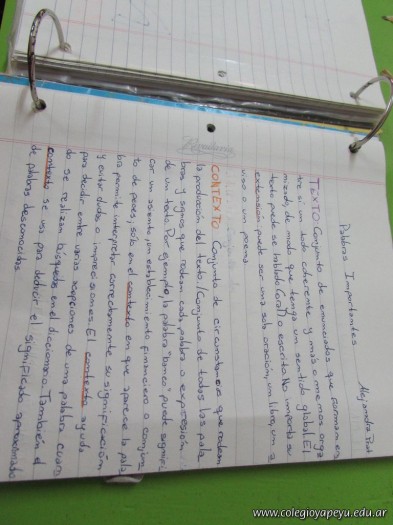 Palabras Importantes
Alejandra
TEXTO: Conjunto de enunciados que forman en
tre sí un todo coherente y más o menos orga
nizado, de modo que tenga un sentido global. El
texto puede ser hablado (oral) o escrito. No importa su
extensión puede ser una sola oración, un libro, un a
viso o un poema.
CONTEXTO Conjunto de circunstancia que rodean
la producción del texto // Conjunto de todas las pala
bras y signos que rodean cada palabra o expresión
de un texto. Por ejemplo, la palabra "banco" puede signifi
car un asiento, un establecimiento financiero o conjun
to de peces, sólo en el contexto en que aparece la pala
bra permite interpretar correctamente su significación
y evitar dudas o imprecisiones. El contexto ayuda
para decidir entre varias acepciones de una palabra cuan
do se realizan búsquedas en el diccionario. También el
contexto se usa para deducir el significado aproximado
de palabras desconocidas
www.colegioyapeyu.edu.ar